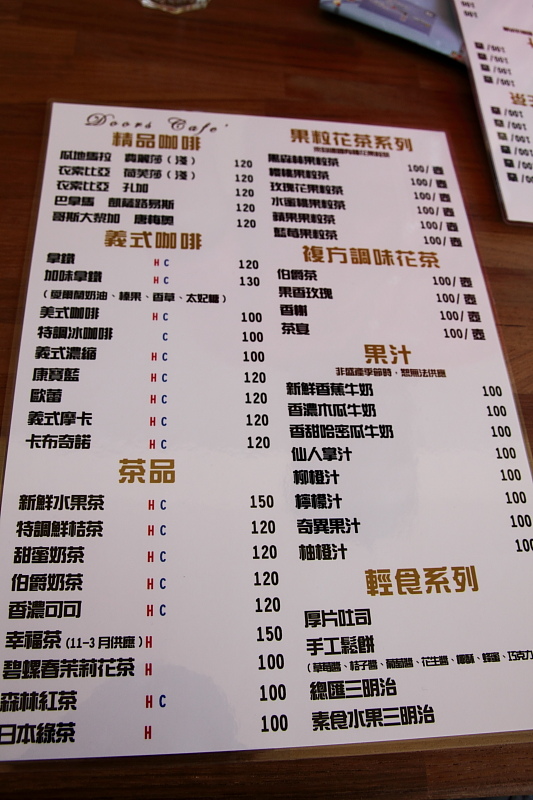 Doors Cafe'
精品咖啡
瓜地馬拉 費麗莎(淺) 120
衣索比亞 荷芙莎(淺) 120
衣索比亞 孔加 120
巴拿馬 凱薩路易斯 120
哥斯大黎加 唐梅奧 120
義式咖啡
拿鐵 H C 120
加味拿鐵 H C 130
(愛爾蘭奶油、榛果、香草、太妃糖)
美式咖啡 H C 100
特調冰咖啡 C 100
義式濃縮 H C 100
康寶藍 H C 120
歐蕾 H C 120
義式摩卡 H C 120
卡布奇諾 H C 120
茶品
新鮮水果茶 H C 150
特調鮮桔茶 H C 120
甜蜜奶茶 H C 120
伯爵奶茶 H C 120
香濃可可 H C 120
幸福茶(11-3月供應) H 150
碧螺春茉莉花茶 H 100
森林紅茶 H C 100
日本綠茶 H 100
果粒花茶系列
黑森林果粒茶 100/壺
櫻桃果粒茶 100/壺
玫瑰花果粒茶 100/壺
水蜜桃果粒茶 100/壺
蘋果果粒茶 100/壺
藍莓果粒茶 100/壺
複方調味花茶
伯爵茶 100/壺
果香玫瑰 100/壺
香榭 100/壺
茶宴 100/壺
果汁
非盛產季節時,恕無法供應
新鮮香蕉牛奶 100
香濃木瓜牛奶 100
香甜哈密瓜牛奶 100
仙人掌汁 100
柳橙汁 100
檸檬汁 100
奇異果汁 100
柚橙汁 100
輕食系列
厚片吐司
手工鬆餅
(草莓醬、桔子醬、葡萄醬、花生醬、椰酥、蜂蜜、巧克力
總匯三明治
素食水果三明治